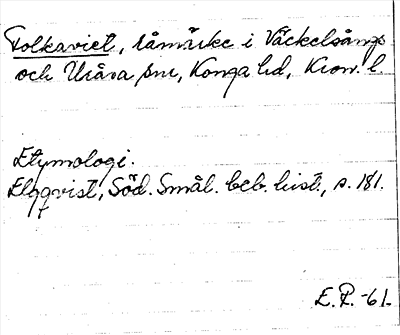 Tolkaviet, råmärke i Väckelsångs
och Uråsa snr, Konga hd, Kron. l.
Etymologi.
Elgqvist, Söd. Smål. beb. hist., s. 181.
E.P. -61.